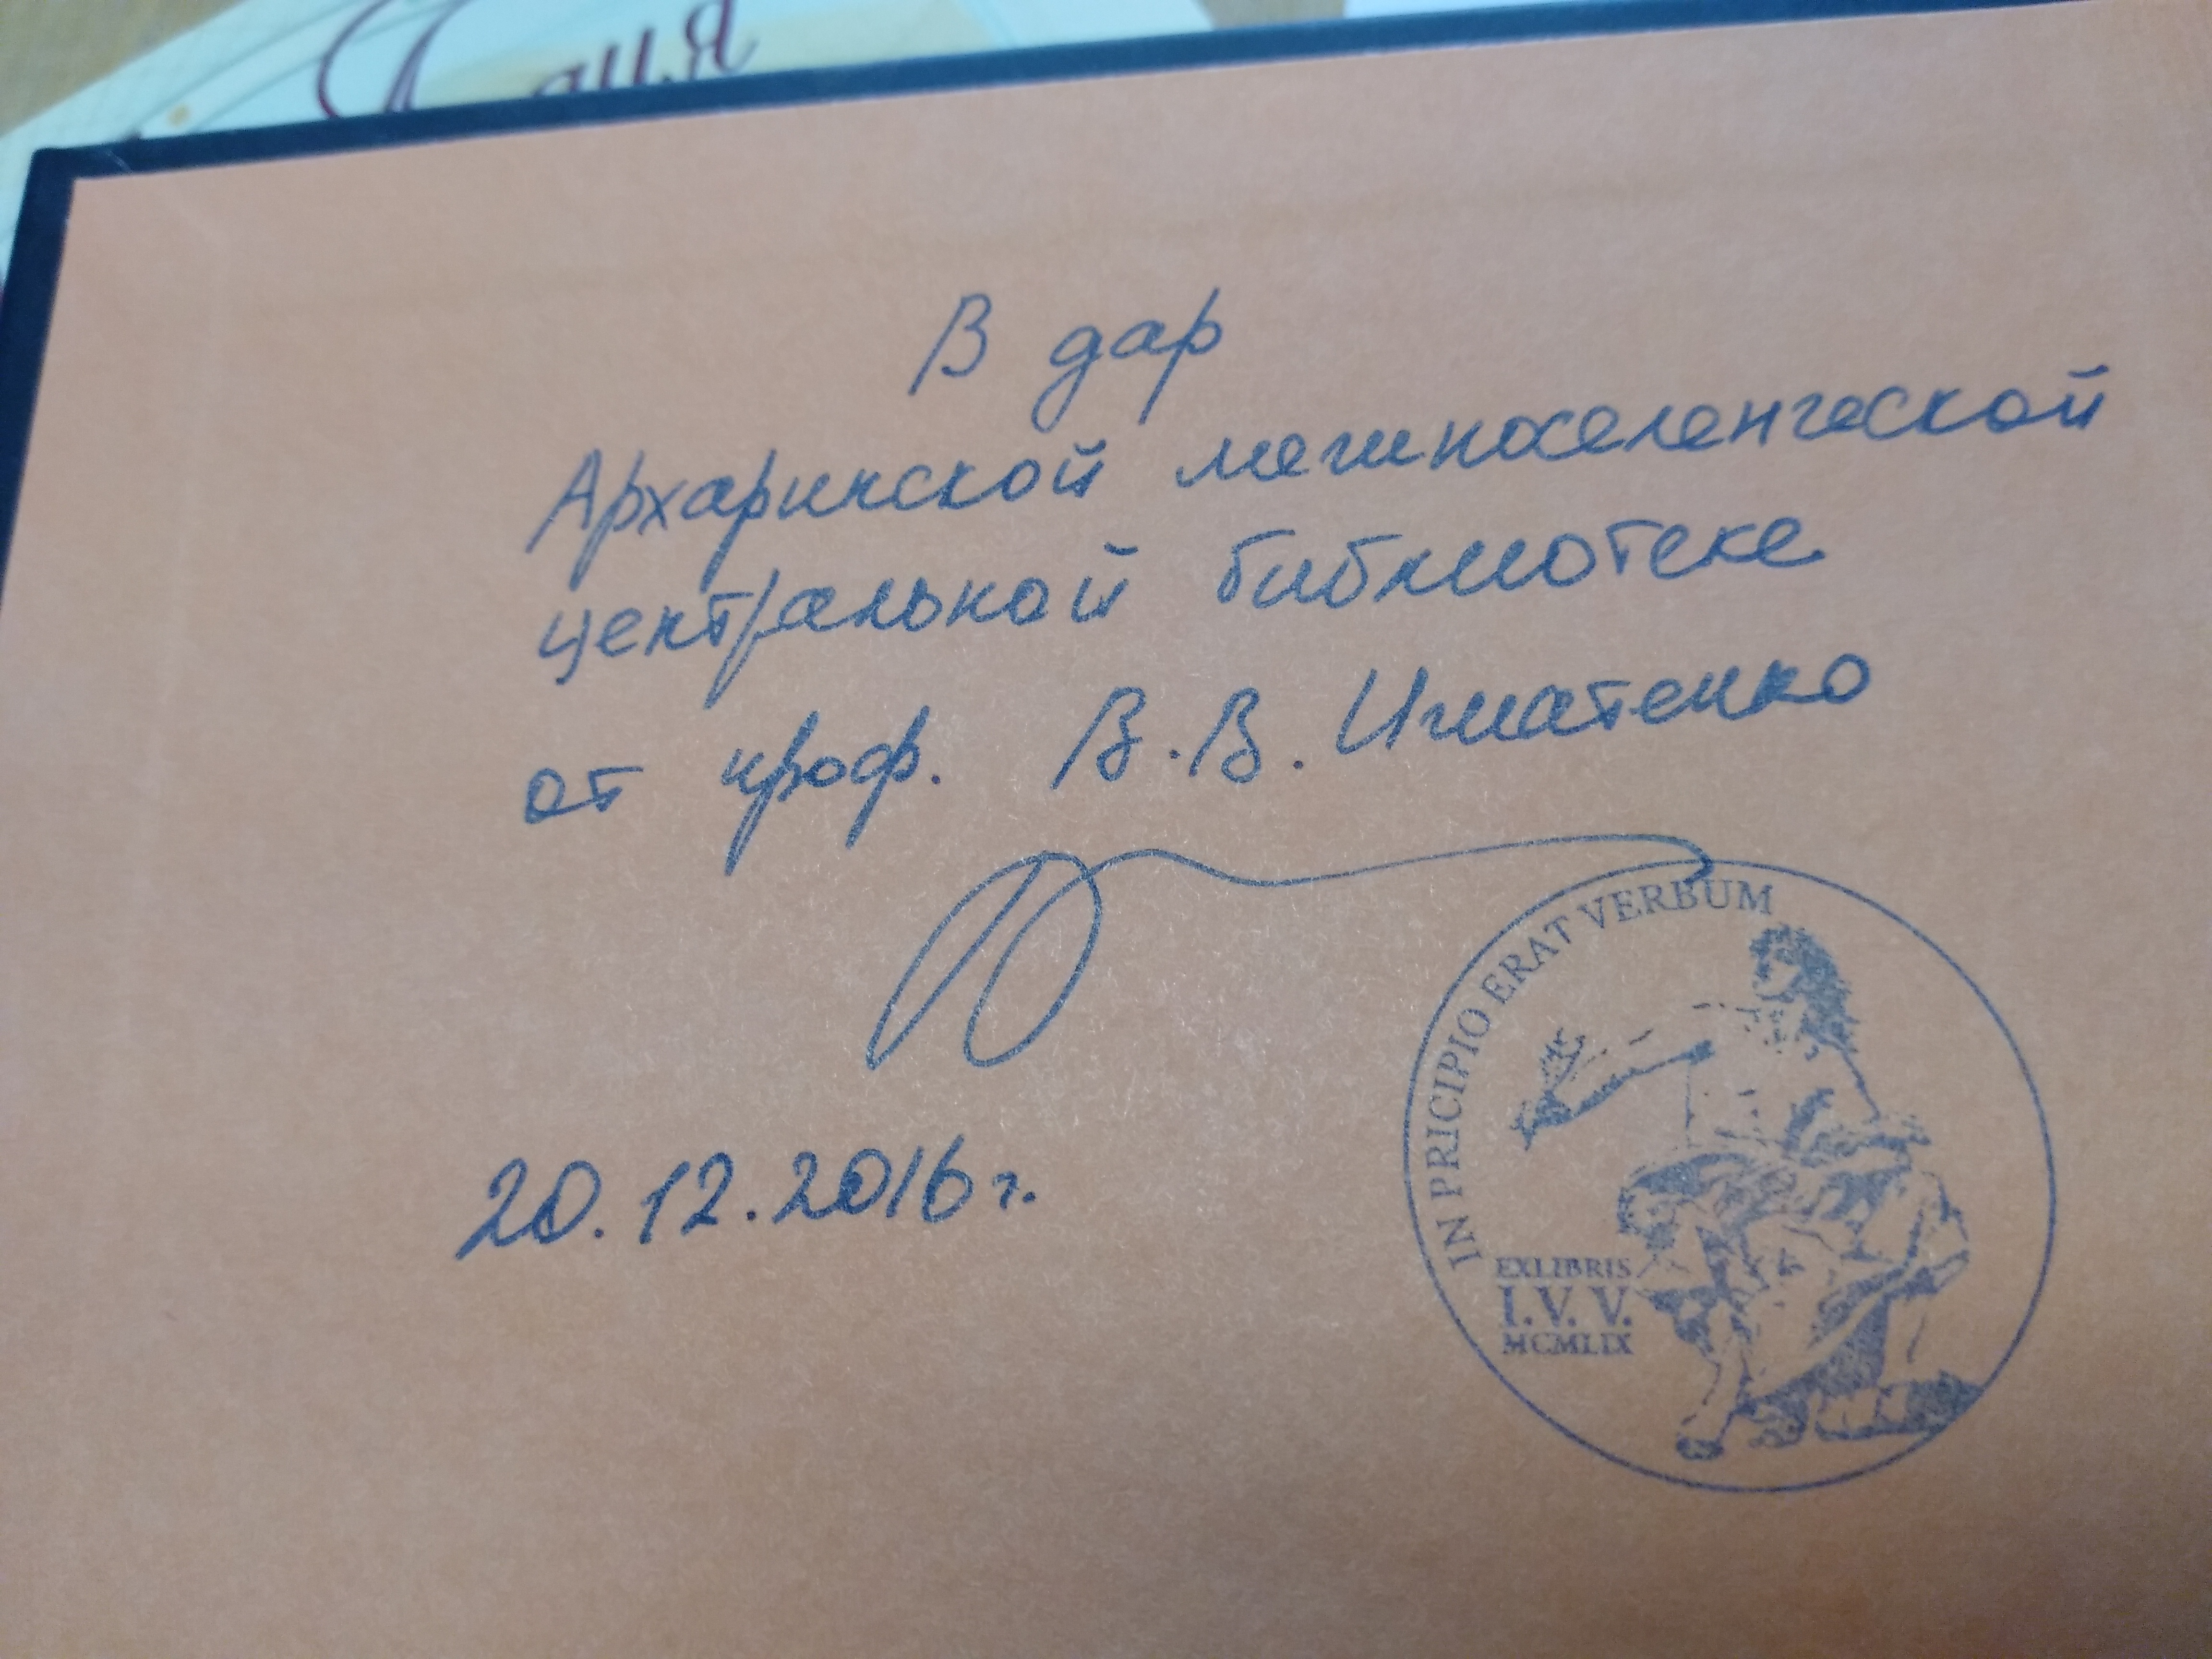 В дар
Архаринской межпоселенческой
центральной библиотеке
от проф. В.В. Игнатенко
IN PRICIPIO ERAT VERBUM
20.12.2016 г.
EXLIBRIS
I.V.V.
MCMLIX